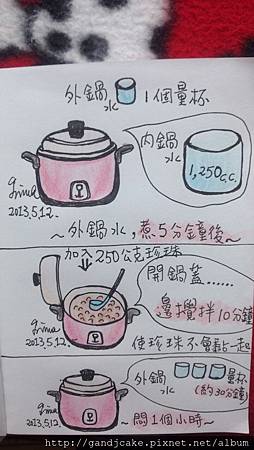 外鍋水 1個量杯
內鍋水
1,250c.c.
gina
2013.5.12.
~外鍋水,煮5分鐘後~
加入250公克珍珠
開鍋蓋......
邊攪拌10分鐘
使珍珠不會黏一起
gina
2013.5.12.
外鍋水 量杯
(約30分鐘)
gina
2013.5.12.
~悶1個小時~
http://gandjcake.pixnet.net/album